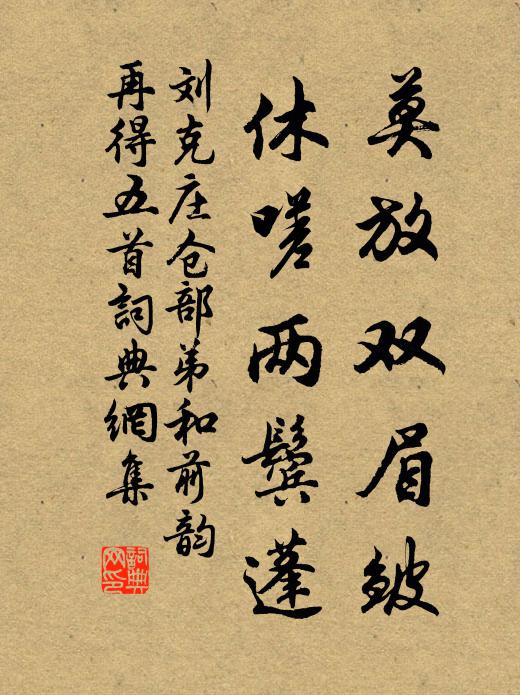 莫放双眉皱
休嗟两鬓蓬
刘克庄仓部弟和前韵
再得五首詞典網集
詞典
网印